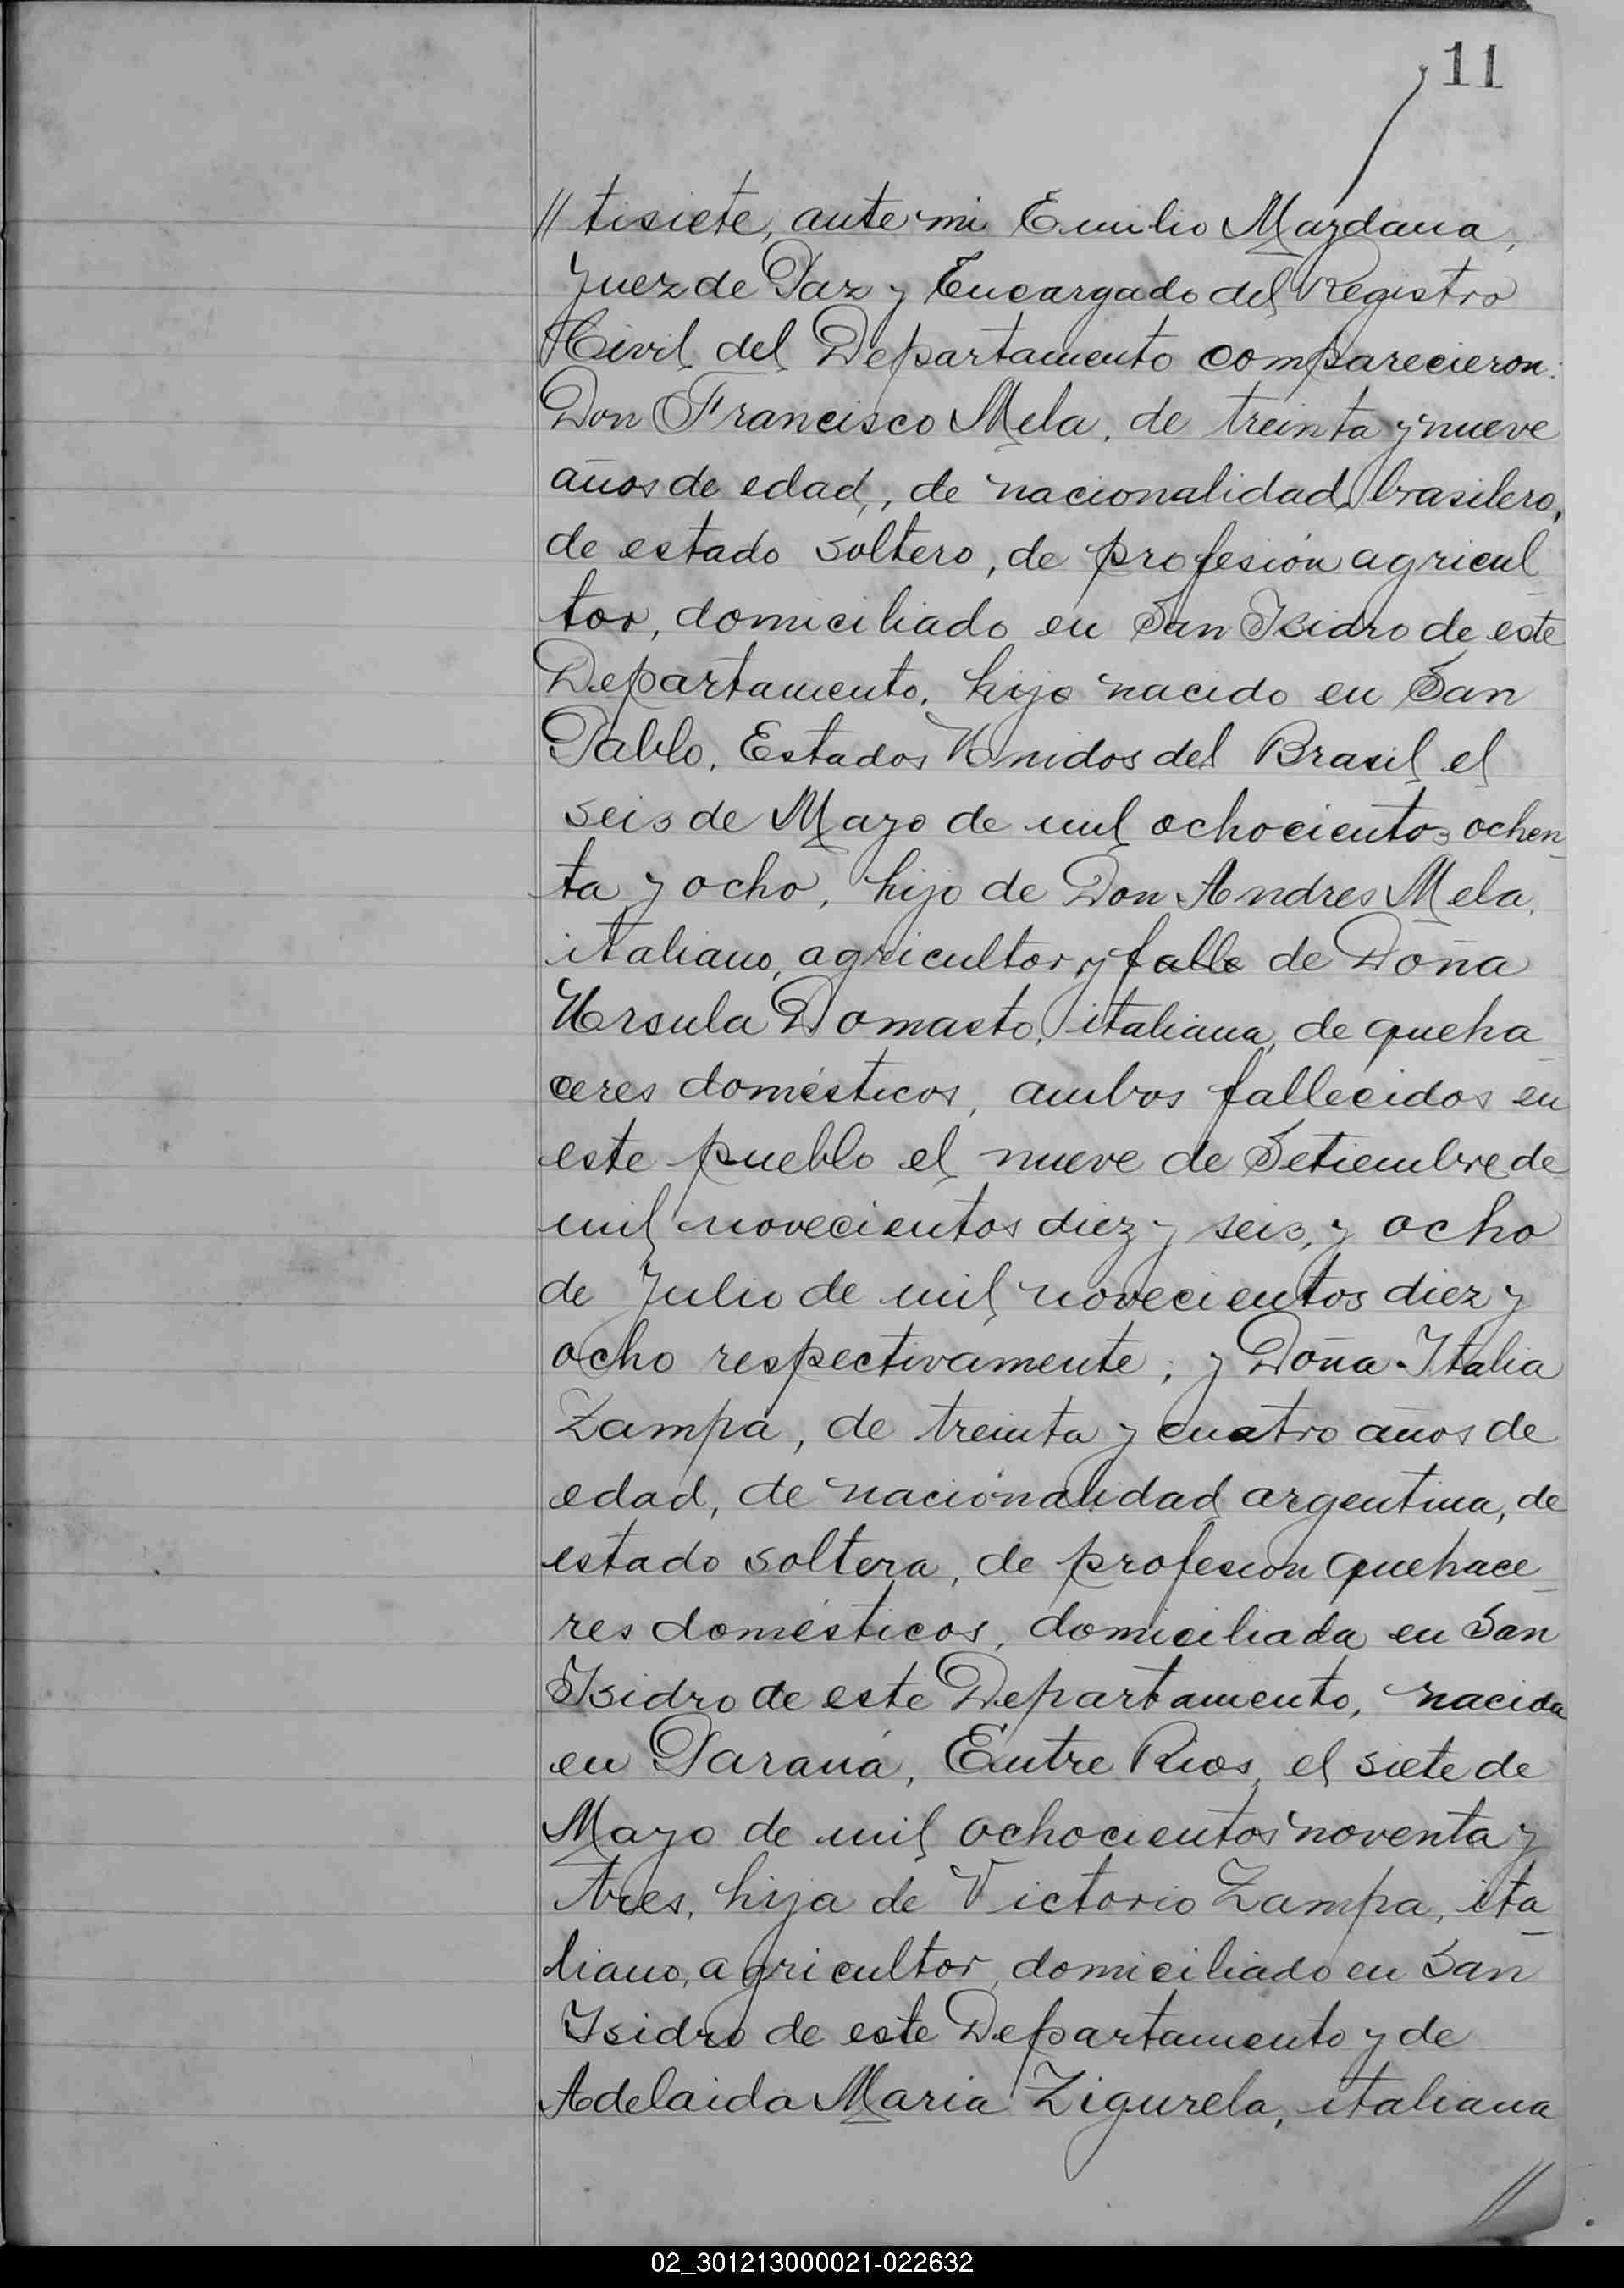 11
// tisiete, ante mi Emilio Mazdana,
Juez de Paz y Encargado del Registro
Civil del Departamento comparecieron:
Don Francisco Mela, de treinta y nueve
años de edad, de nacionalidad brasilero,
de estado soltero, de profesión agricul
tor, domiciliado en San Isidro de este
Departamento, hijo nacido en San
Pablo, Estados Unidos del Brasil el
seis de Mayo de mil ochocientos ochen
ta y ocho, hijo de Don Andres Mela,
italiano, agricultor y falle de Doña
Ursula Domasto, italiana, de queha
ceres domésticos, ambos fallecidos en
este pueblo el nueve de Setiembre de
mil novecientos diez y seis, y ocho
de Julio de mil novecientos diez y
ocho respectivamente; y Doña Italia
Zampa, de treinta y cuatro años de
edad, de nacionalidad argentina, de
estado soltera, de profesion quehace
res domésticos, domiciliada en San
Isidro de este Departamento, nacida
en Paraná, Entre Rios, el siete de
Mayo de mil ochocientos noventa y
tres, hija de Victorio Zampa, ita
liano, agricultor, domiciliado en San
Isidro de este Departamento y de
Adelaida Maria Zigurela, italiana
//
02_301213000021-022632